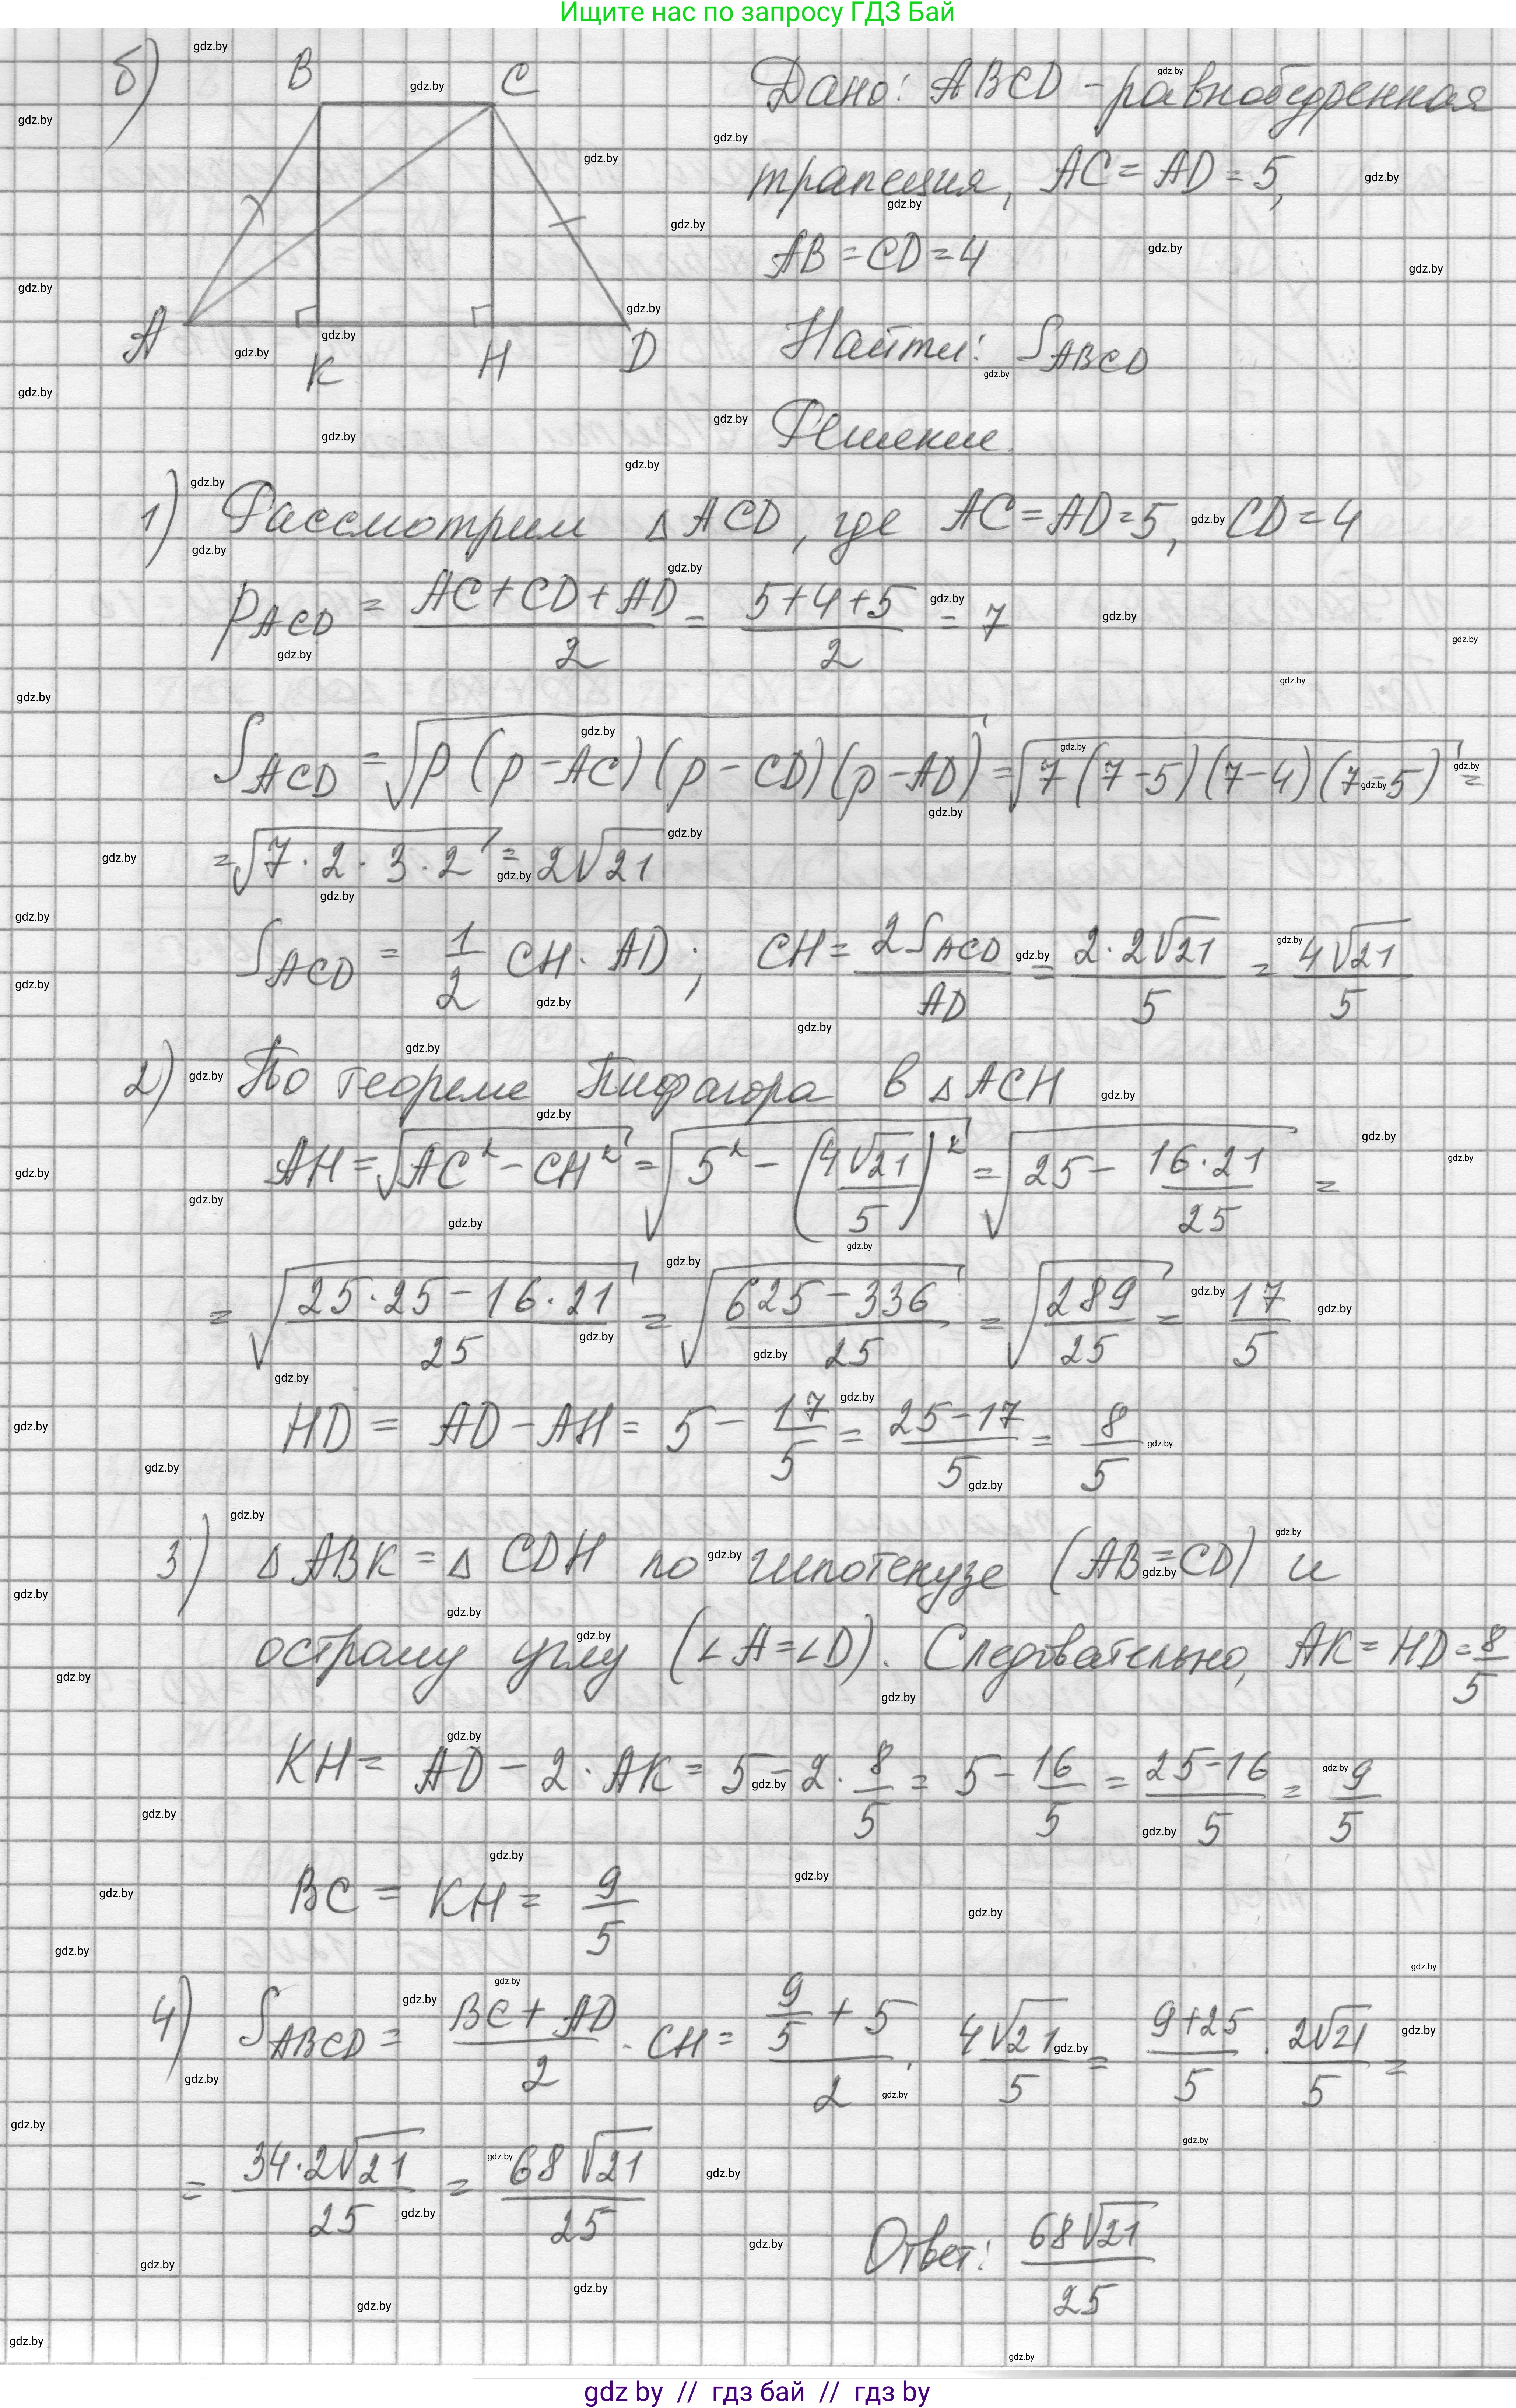 Ищите нас по запросу ГДЗ Бай
б) B C A K H D
Дано: ABCD - равнобедренная
трапеция, AC = AD = 5,
AB = CD = 4
Найти: S_ABCD
Решение.
1) Рассмотрим △ ACD, где AC = AD = 5, CD = 4
p_ACD = (AC + CD + AD)/2 = (5+4+5)/2 = 7
S_ACD = √(p(p - AC)(p - CD)(p - AD)) = √(7(7-5)(7-4)(7-5)) =
= √(7·2·3·2) = 2√21
S_ACD = 1/2 CH · AD; CH = 2S_ACD/AD = 2·2√21/5 = 4√21/5
2) По теореме Пифагора в △ ACH
AH = √(AC² - CH²) = √(5² - (4√21/5)²) = √(25 - 16·21/25) =
= √((25·25 - 16·21)/25) = √((625 - 336)/25) = √(289/25) = 17/5
HD = AD - AH = 5 - 17/5 = (25-17)/5 = 8/5
3) △ ABK = △ CDH по гипотенузе (AB = CD) и
острому углу (∠A = ∠D). Следовательно, AK = HD = 8/5
KH = AD - 2·AK = 5 - 2·8/5 = 5 - 16/5 = (25-16)/5 = 9/5
BC = KH = 9/5
4) S_ABCD = (BC + AD)/2 · CH = (9/5 + 5)/2 · 4√21/5 = (9+25)/5 · 2√21/5 =
= 34·2√21/25 = 68√21/25
Ответ: 68√21/25
gdz by // гдз бай // гдз by